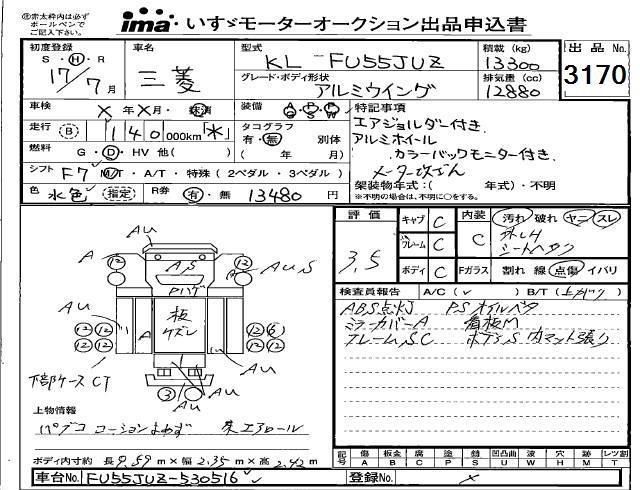 ※太枠内は必ずボールペンでご記入下さい。
ima いすゞモーターオークション出品申込書
初度登録 S・H・R 17/7月
車名 三菱
型式 KL-FU55JUZ
積載(kg) 13300
出品No. 3170
グレード・ボディ形状 アルミウイング
排気量(cc) 12880
車検 ×年×月・抹消
装備
特記事項
走行 B 1140000km
タコグラフ 有・無 別体 ( 年 月)
エアジョルダー付き.
アルミホイール
カラーバックモニター付き.
メーター改ざん
燃料 G・D・HV 他( )
シフト F7 M/T・A/T・特殊(2ペダル・3ペダル)
架装物年式:( 年式)・不明
※不明の場合は、不明に○をする。
色 水色 指定 R券 有・無 13480円
評価 3.5
キャブ C
フレーム C
ボディ C
内装 C 汚れ 破れ ヤニ スレ
Fガラス 割れ 線 点傷 イバリ
検査員報告 A/C(✓) B/T( )
ABS点灯 PSオイルベタ
ミラーカバーA 看板M
フレームS,C ボデS,S 内マット張り
AU
A 12 A,S 12 AU,S
Pハゲ
AU 板ケズレ A
12 12 12 6
12 12 12 12
AU
下部ケースCT AU 3 AU AU
上物情報
パブコ
ボディ内寸約 長9.59m×幅2.35m×高2.42m
記号 傷A 板金B 腐C 塗P 錆S 凹凸凸U 曲W 割H 穴O 跡M レツ割T
車台No. FU55JUZ-530516
登録No. ×